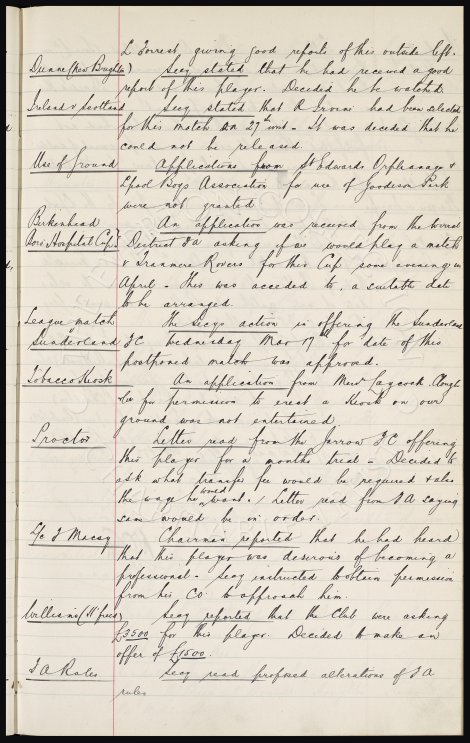 L Forrest, giving good reports of this outside left.
Dunne (New Brighton) Secy stated that he had received a good
report of this player. Decided he be watched.
Ireland v Scotland Secy stated that R Irvine had been selected
for this match on 27th inst - It was decided that he
could not be released.
Use of Ground Applications from St Edwards Orphanage &
Lpool Boys Association for use of Goodison Park
were not granted
Birkenhead An application was received from the Wirral
Boro' Hospital Cup District FA asking if we would play a match
v Tranmere Rovers for this Cup some evening in
April - This was acceded to, a suitable date
to be arranged.
League match The Secys action in offering the Sunderland
Sunderland FC Wednesday Mar 17th for date of this
postponed match was approved.
Tobacco Kiosk An application from Messrs Laycock Clough
Co for permission to erect a Kiosk on our
ground was not entertained
Proctor Letter read from the Jarrow FC offering
this player for a months trial - Decided to
ask what transfer fee would be required & also
the wage he would want. / Letter read from FA saying
same would be in order.
J Macey Chairman reported that he had heard
that this player was desirous of becoming a
professional - Secy instructed to obtain permission
from his CO to approach him.
Williams Secy reported that the Club were asking
£3500 for this player. Decided to make an
offer of £1500.
FA Rules Secy read proposed alterations of FA
rules